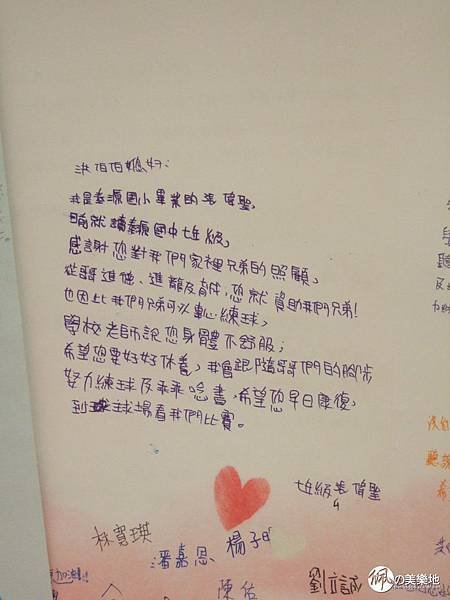 洪伯伯您好:
我是泰源國小畢業的張偉聖,
目前就讀泰源國中七年級,
感謝您對我們家裡兄弟的照顧,
從哥進偉、進龍及育成,您就資助我們兄弟!
也因此我們兄弟可以專心練球,
學校老師說您身體不舒服;
希望您要好好休養,我會跟隨哥哥們的腳步
努力練球及乖乖唸書,希望您早日康復,
到球場看我們比賽。
七年級 張偉聖
林寶瑛
潘嘉恩
楊子
陳佑
劉立誠
佩の美樂地